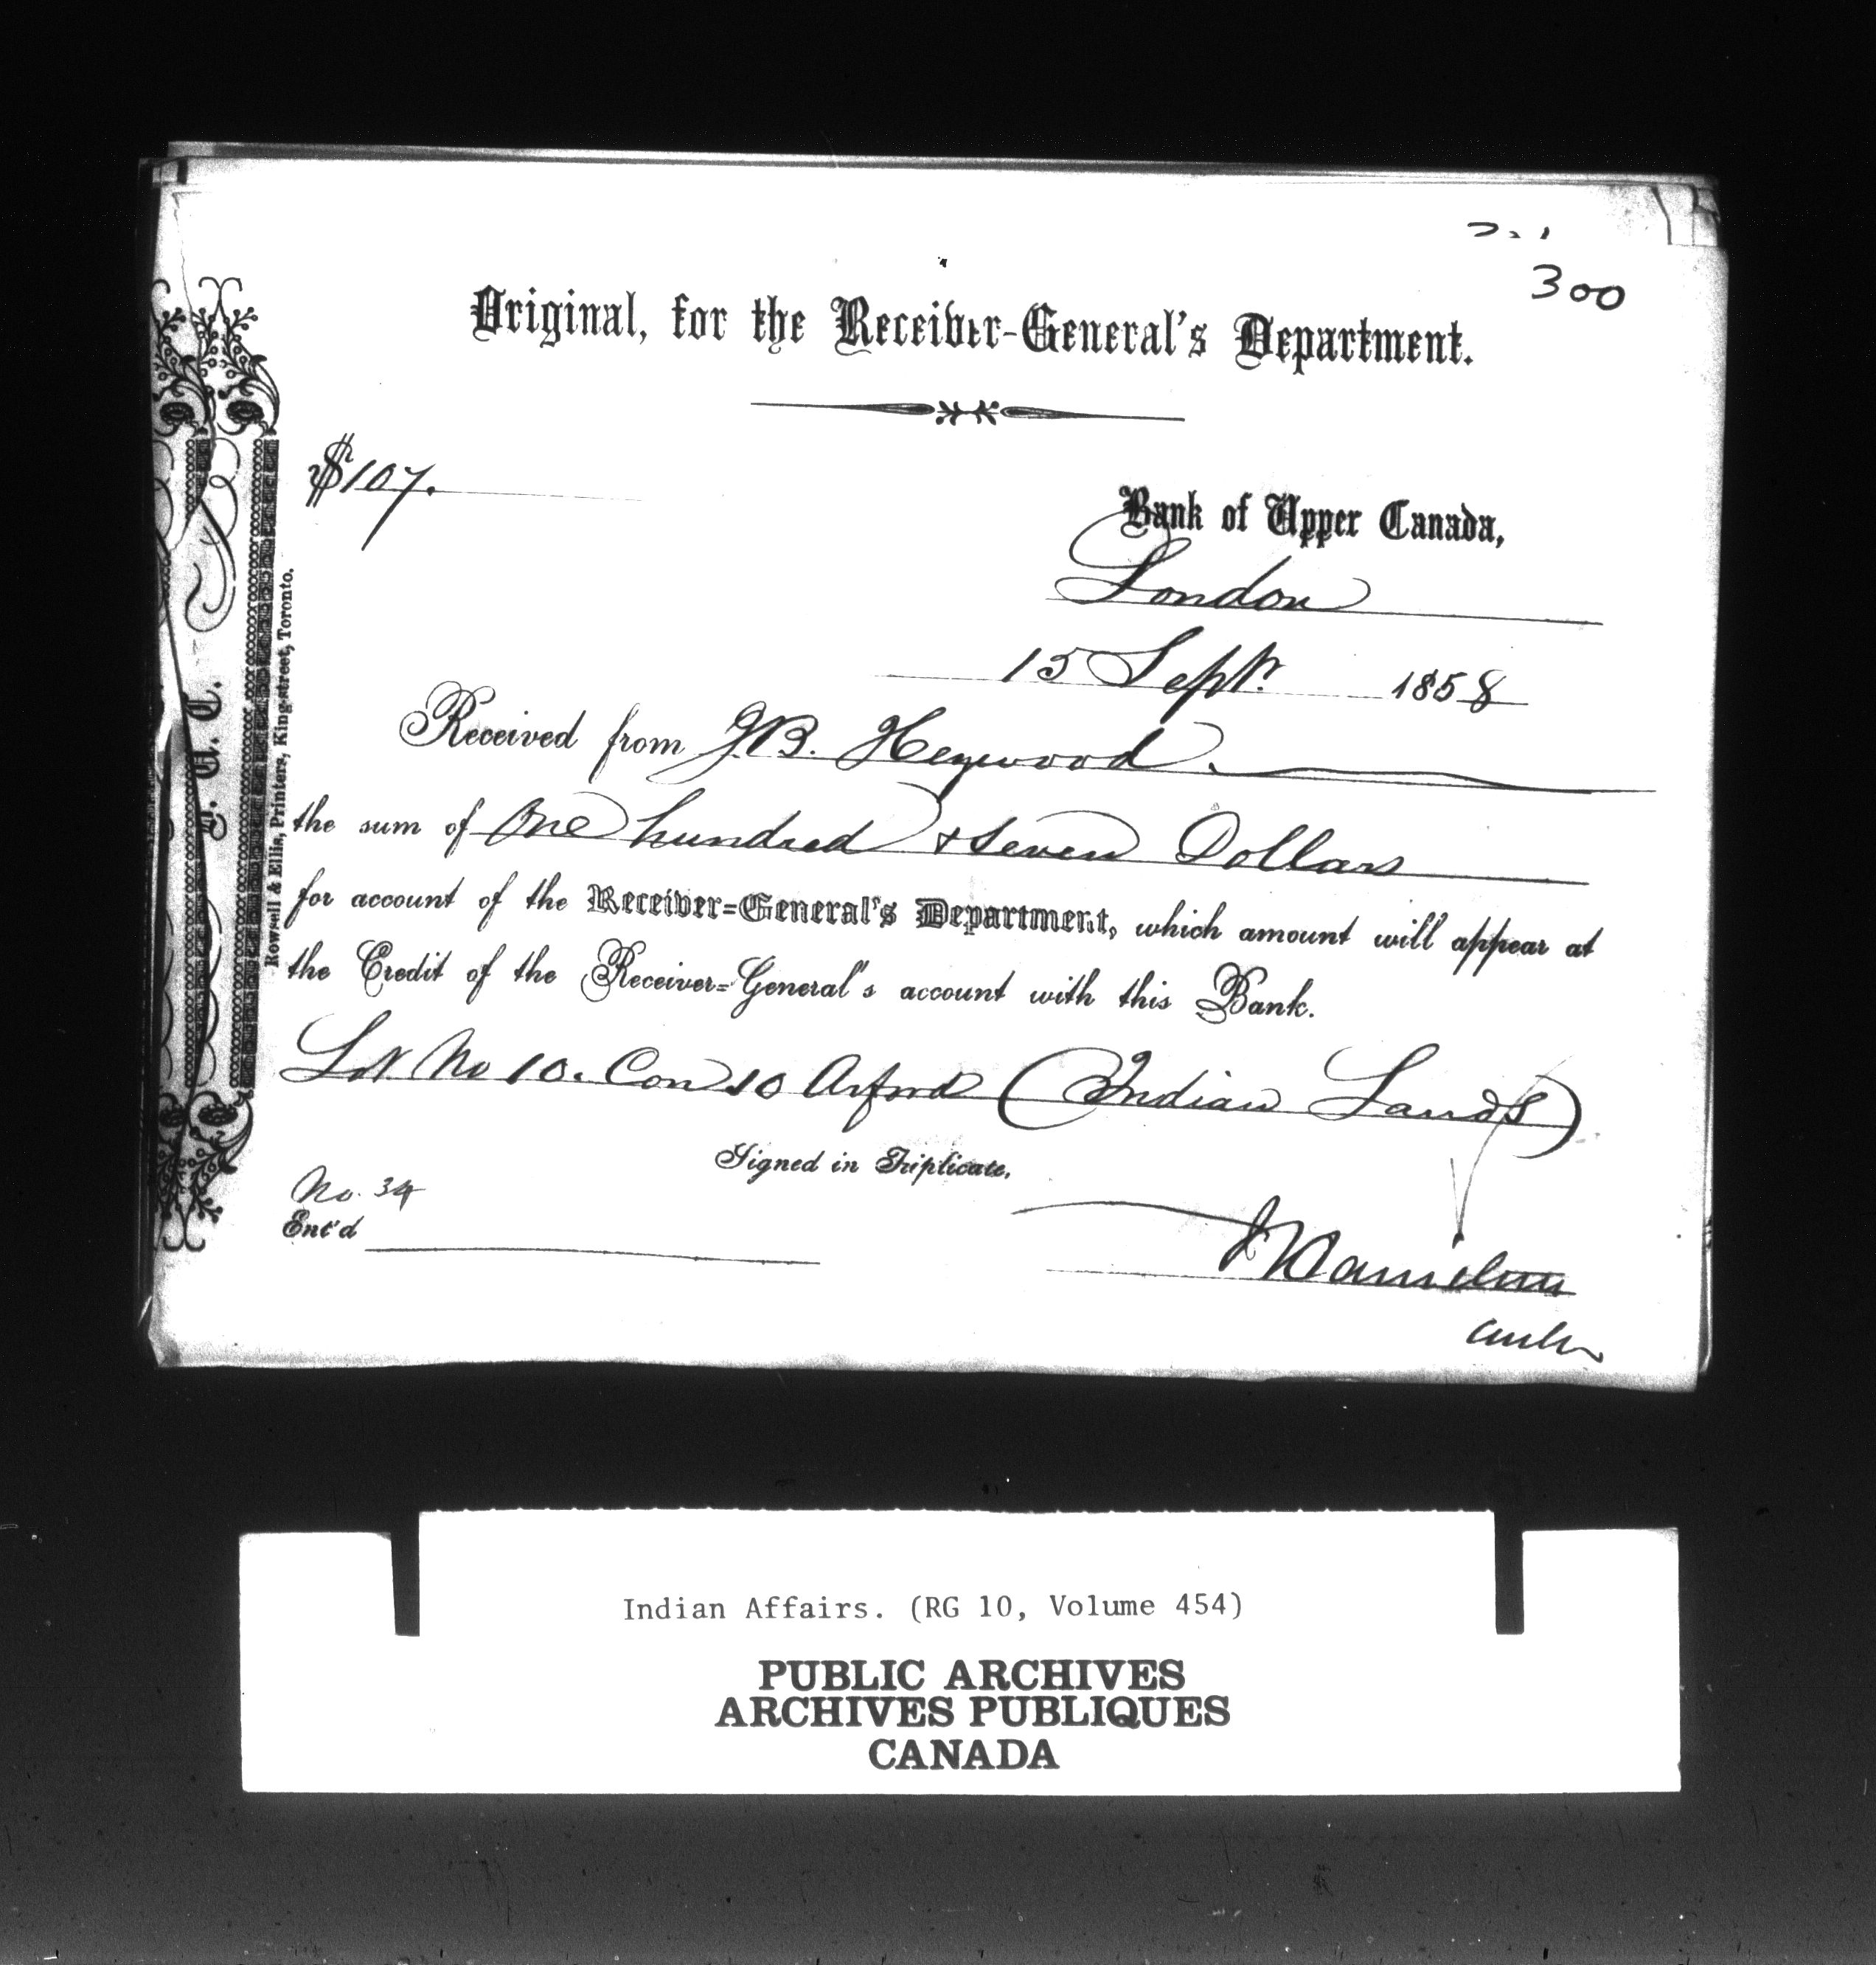 300
Original, for the Receiver-General's Department.
$107.
Bank of Upper Canada,
London
15 Septr. 1858
Received from J.B. Heywood.
the sum of One hundred + Seven Dollars
for account of the Receiver=General's Department, which amount will appear at
the Credit of the Receiver=General's account with this Bank.
Lot No 10. Con 10 Orford (Indian Lands)
Signed in Triplicate,
No. 34
Ent'd
J Hamilton
Rowsell & Ellis, Printers, King-street, Toronto.
Indian Affairs. (RG 10, Volume 454)
PUBLIC ARCHIVES
ARCHIVES PUBLIQUES
CANADA